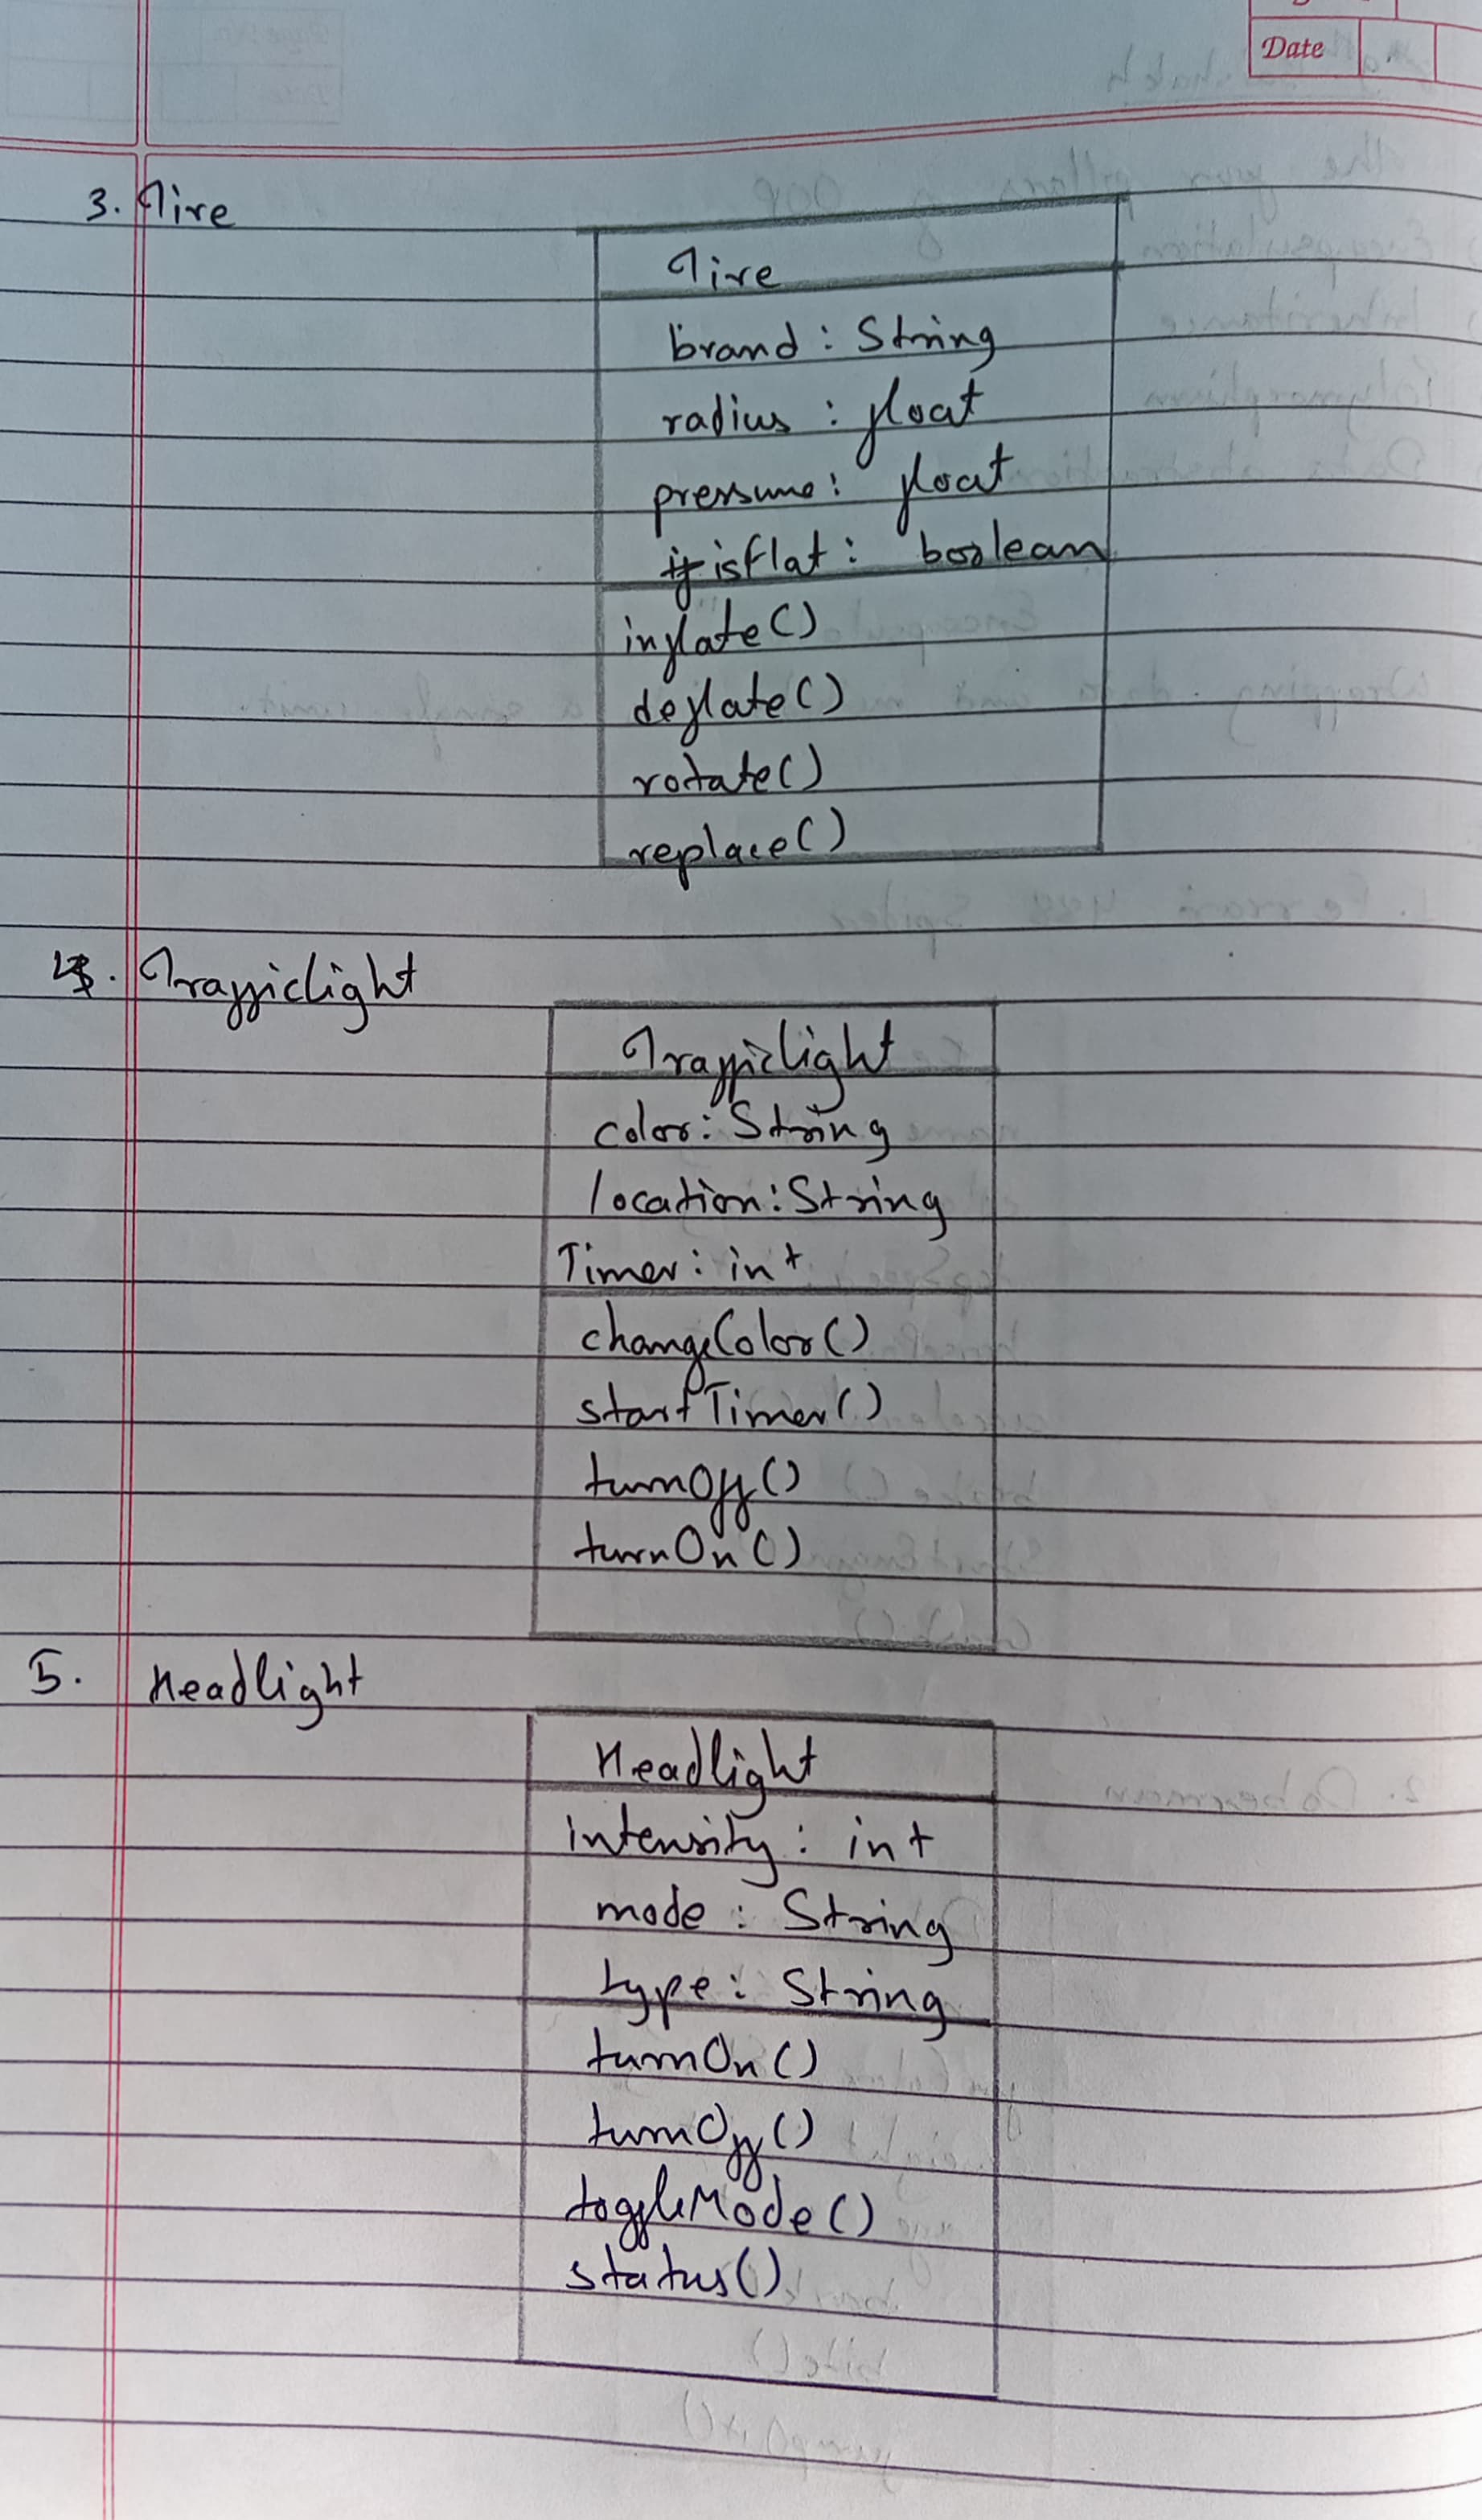 Date
3. Tire
Tire
brand : String
radius : float
pressure : float
isFlat : boolean
inflate()
deflate()
rotate()
replace()
4. Trafficlight
Trafficlight
color : String
location : String
Timer : int
changeColor()
startTimer()
turnOff()
turnOn()
5. Headlight
Headlight
intensity : int
mode : String
type : String
turnOn()
turnOff()
toggleMode()
status()